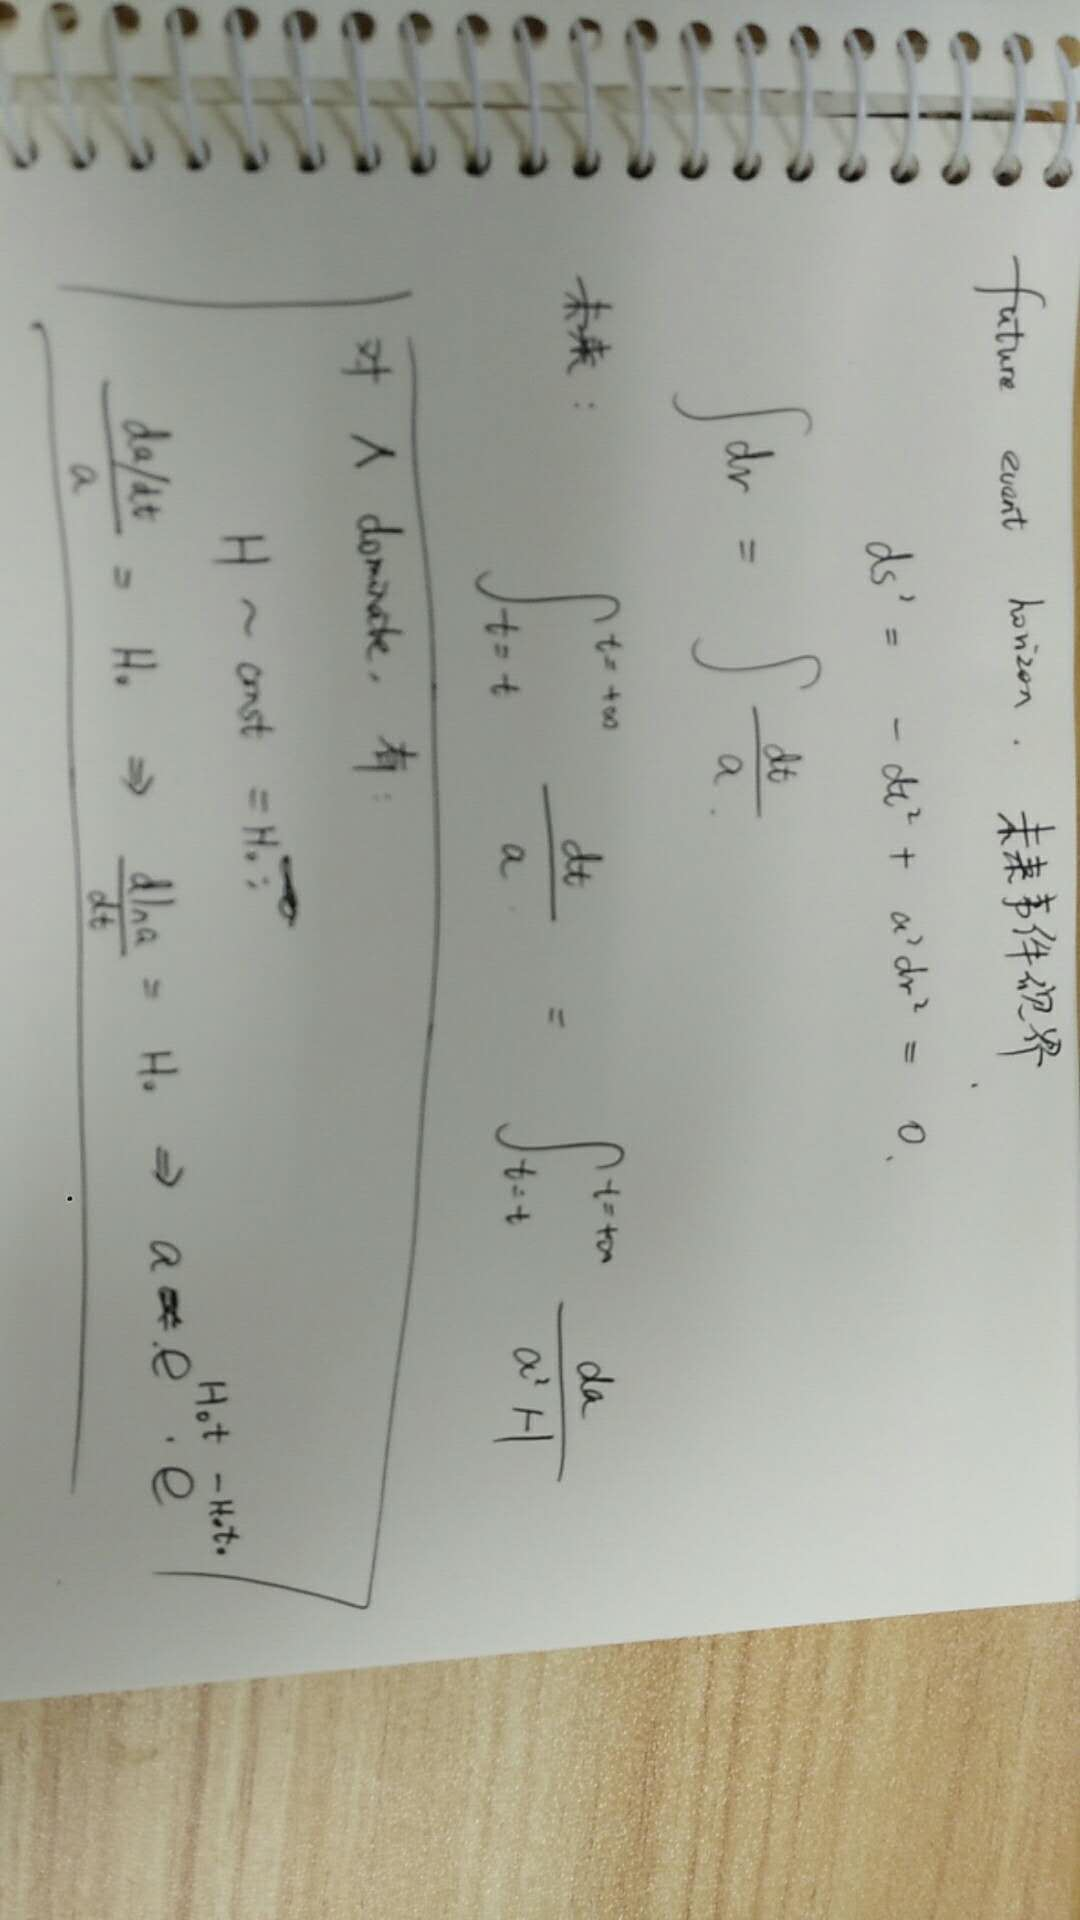 future event horizon. 未来事件视界.
ds² = - dt² + a²dr² = 0.
∫ dr = ∫ dt/a.
未来: ∫_{t=t}^{t=+∞} dt/a. = ∫_{t=t}^{t=+∞} da/(a²H)
对 λ dominate, 有:
H ~ const = H₀;
(da/dt)/a = H₀ ⇒ dlna/dt = H₀ ⇒ a = e^{H₀t} · e^{-H₀t₀}